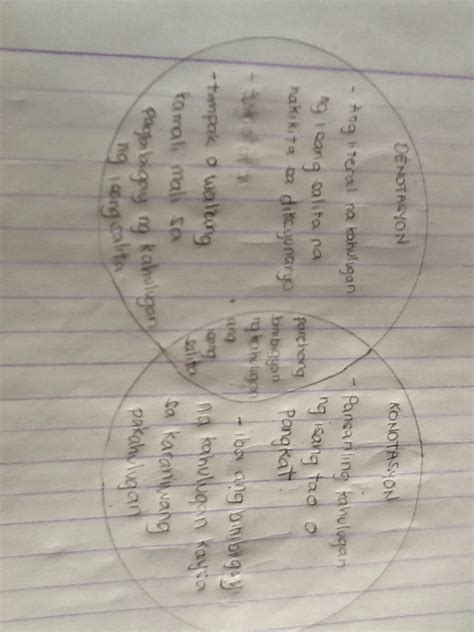 DENOTASYON
- Ang literal na kahulugan
ng isang salita na
makikita sa diksyunaryo
- tumpak o walang
kamali mali sa
pagbibigay ng kahulugan
ng isang salita.
parehong
binibigyan
ng kahulugan
ang
isang
salita
KONOTASYON
- Pansariling kahulugan
ng isang tao o
pangkat.
- iba ang binibigay
na kahulugan kaysa
sa karaniwang
pakahulugan